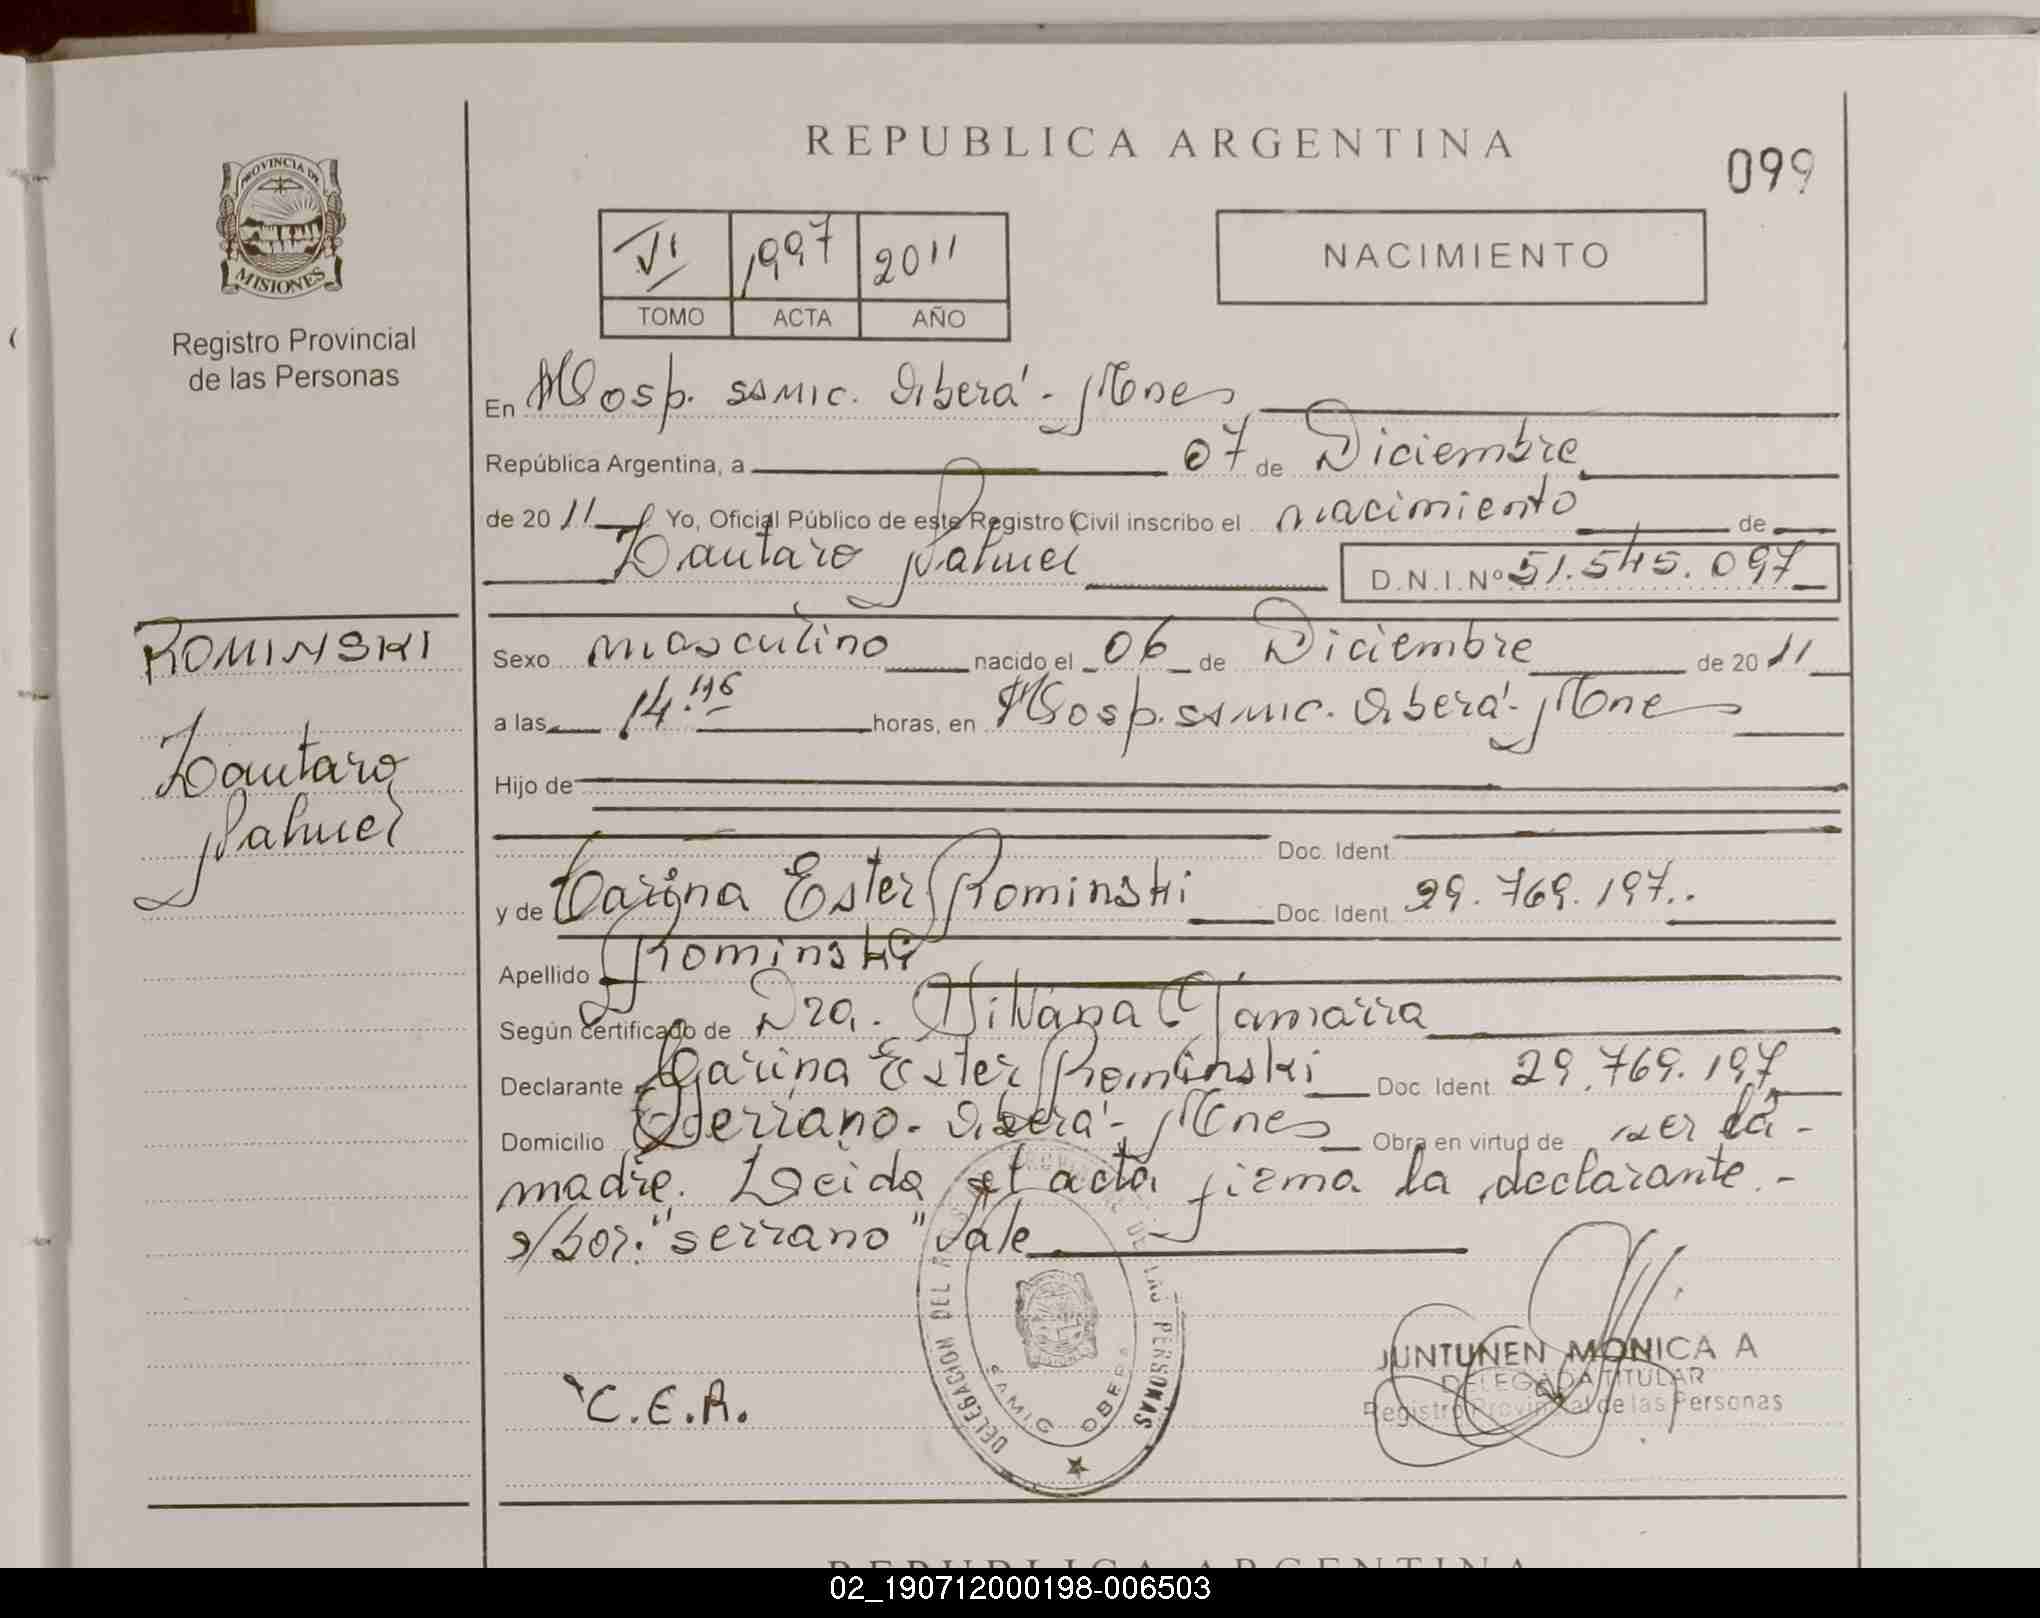 REPUBLICA ARGENTINA
099
PROVINCIA DE
MISIONES
Registro Provincial
de las Personas
VI 1997 2011
TOMO ACTA AÑO
NACIMIENTO
En Hosp. SAMIC. Oberá - Mnes
República Argentina, a 07 de Diciembre
de 20 11 Yo, Oficial Público de este Registro Civil inscribo el nacimiento de
Lautaro Nahuel D.N.I.Nº 51.545.097
ROMINSKI
Lautaro
Nahuel
Sexo masculino nacido el 06 de Diciembre de 20 11
a las 14:46 horas, en Hosp. SAMIC. Oberá - Mnes
Hijo de
Doc. Ident.
y de Carina Ester Rominski Doc. Ident. 29.769.197..
Apellido Rominski
Según certificado de Dra. Silvana Gamarra
Declarante Carina Ester Rominski Doc. Ident. 29.769.197
Domicilio Serrano - Oberá - Mnes Obra en virtud de ser la -
madre. Leida el acta firma la declarante. -
s/bor: "serrano" vale
DELEGACION DEL DE LAS PERSONAS
SAMIC OBERA
C.E.R.
JUNTUNEN MONICA A
DELEGADA TITULAR
Registro Provincial de las Personas
REPUBLICA ARGENTINA
02_190712000198-006503